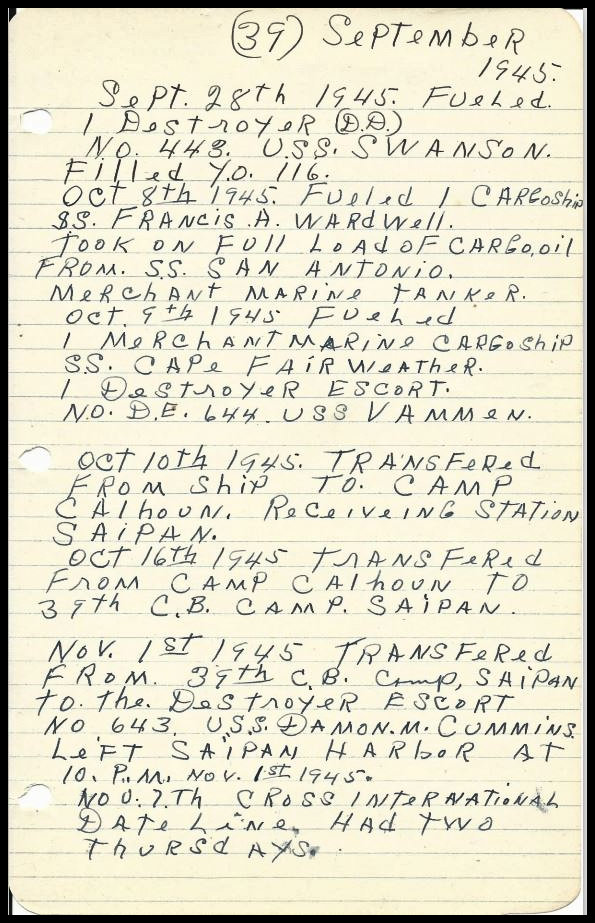 (39) SePTembeR
1945.
SePT. 28th 1945. Fueled.
1 DesTroyeR (D.D.)
No. 443. U.S.S. SWANSON.
Filled Y.O. 116.
OCT 8th 1945. Fueled 1 CARGoship
SS. FRANcis .A. WARdwell.
Took on Full LoAd oF CARGo,oil
FROM. S.S. SAN ANTONIO.
MeRchANT MARiNe TANKeR.
OcT. 9th 1945 Fueled
1 MeRchANT MARiNe CARGoShiP
SS. CAPe FAiRweATheR.
1 DesTroyeR ESCoRT.
No. D.E. 644. USS VAMMeN.
OCT 10th 1945. TRANSFeRed
FROM ShiP TO. CAMP
CAlhouN. ReceiveiNG STATioN
SAiPAN.
OCT 16th 1945 TRANSFeRed
FRoM CAMP CAlhouN TO
39th C.B. CAMP. SAiPAN.
Nov. 1st 1945 TRANSFeRed
FROM. 39th C.B. Camp, SAiPAN
To. The. DesTroyeR ESCoRT
No 643. U.S.S. DAMON.M.CUMMiNS.
LeFT SAiPAN HARboR AT
10. P.M. Nov. 1st 1945.
Nov. 7.Th CRoss INTeRNATioNAL
DATe LiNe. HAd Two
ThuRsdAYs.